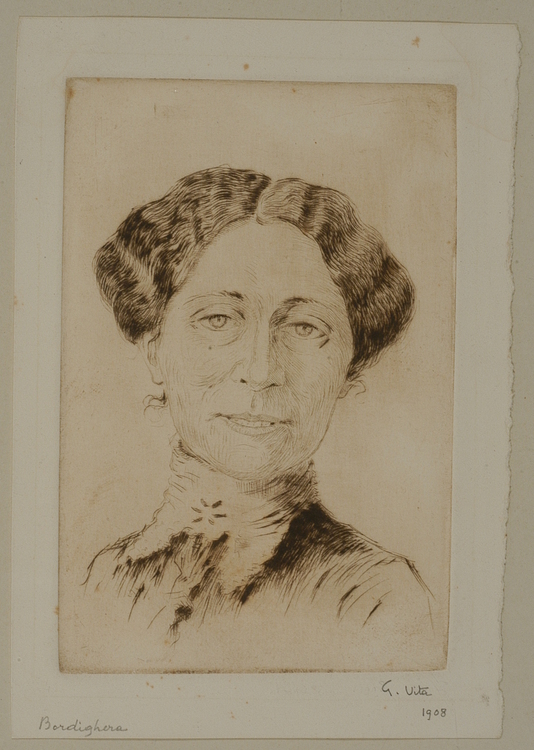 G. Vita
1908
Bordighera